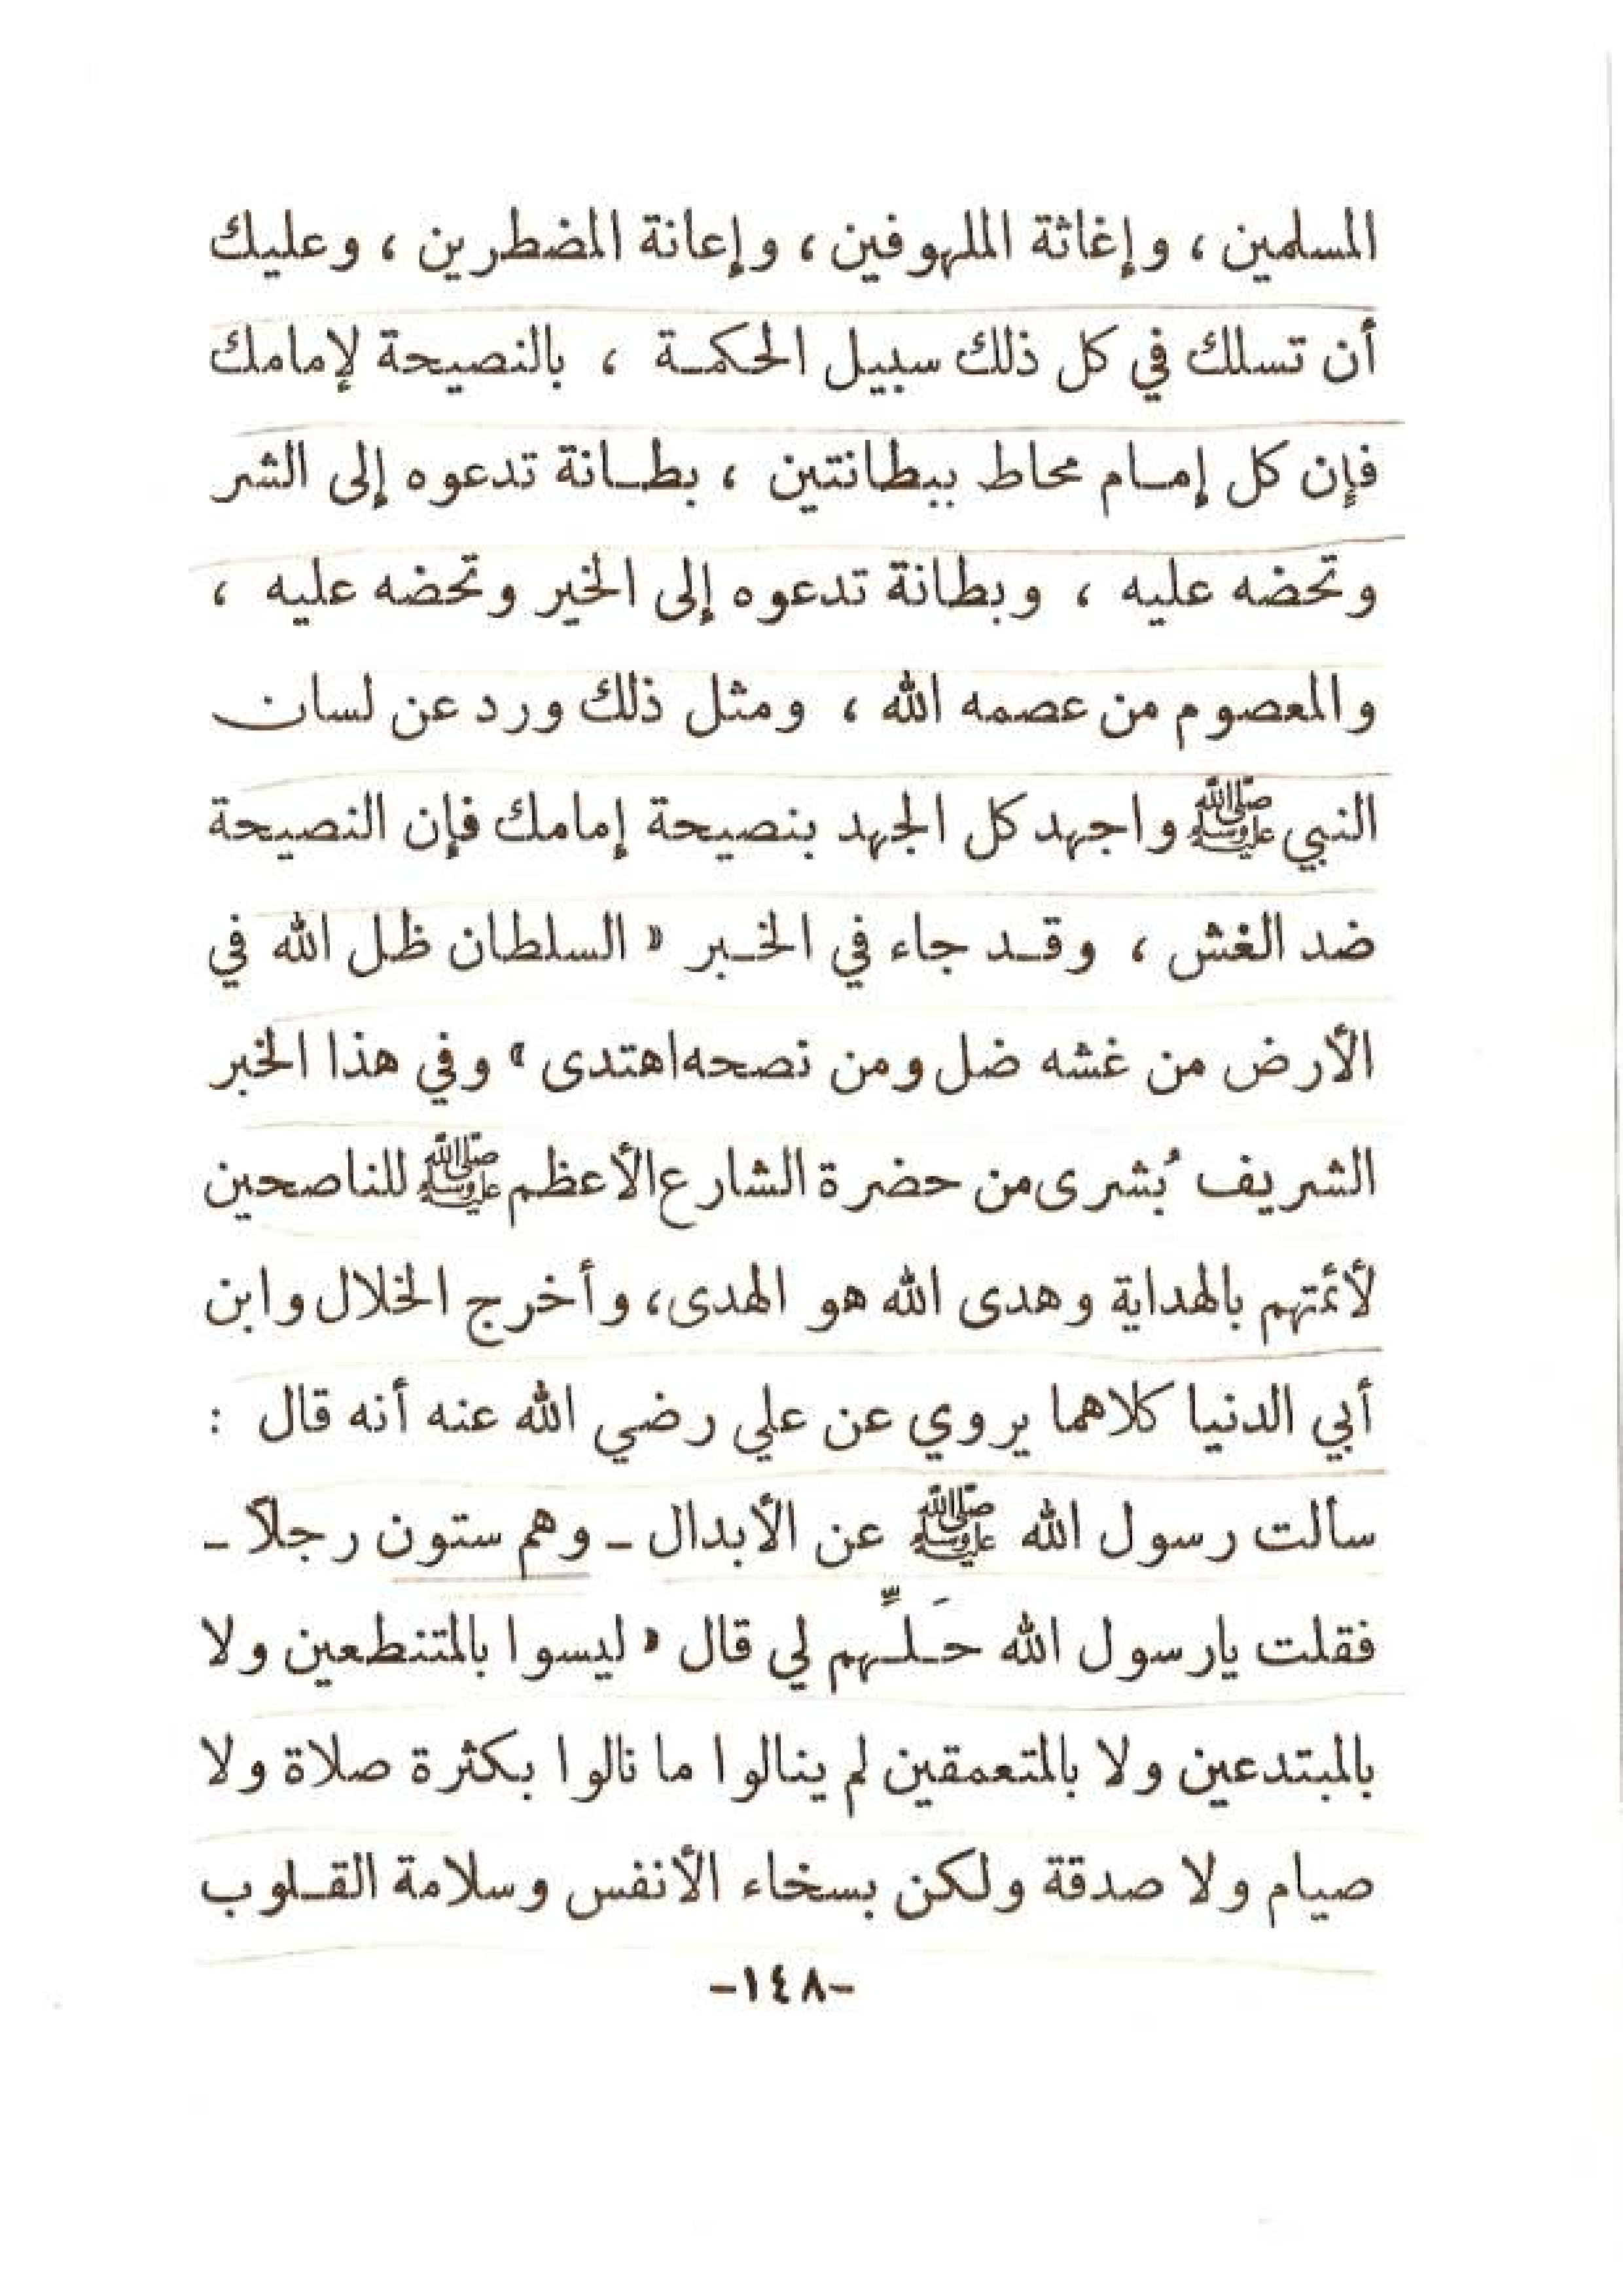 المسلمين ، وإغاثة الملهوفين ، وإعانة المضطرين ، وعليك
أن تسلك في كل ذلك سبيل الحكمـة ، بالنصيحة لإمامك
فإن كل إمـام محاط ببطانتين ، بطـانة تدعوه إلى الشر
وتحضه عليه ، وبطانة تدعوه إلى الخير وتحضه عليه ،
والمعصوم من عصمه الله ، ومثل ذلك ورد عن لسان
النبي ﷺ واجهد كل الجهد بنصيحة إمامك فإن النصيحة
ضد الغش ، وقـد جاء في الخـبر « السلطان ظل الله في
الأرض من غشه ضل ومن نصحه اهتدى » وفي هذا الخبر
الشريف بُشرى من حضرة الشارع الأعظم ﷺ للناصحين
لأئمتهم بالهداية وهدى الله هو الهدى، وأخرج الخلال وابن
أبي الدنيا كلاهما يروي عن علي رضي الله عنه أنه قال :
سألت رسول الله ﷺ عن الأبدال ـ وهم ستون رجلاً ـ
فقلت يارسول الله حَـلِّـهم لي قال « ليسوا بالمتنطعين ولا
بالمبتدعين ولا بالمتعمقين لم ينالوا ما نالوا بكثرة صلاة ولا
صيام ولا صدقة ولكن بسخاء الأنفس وسلامة القـلوب
-١٤٨-